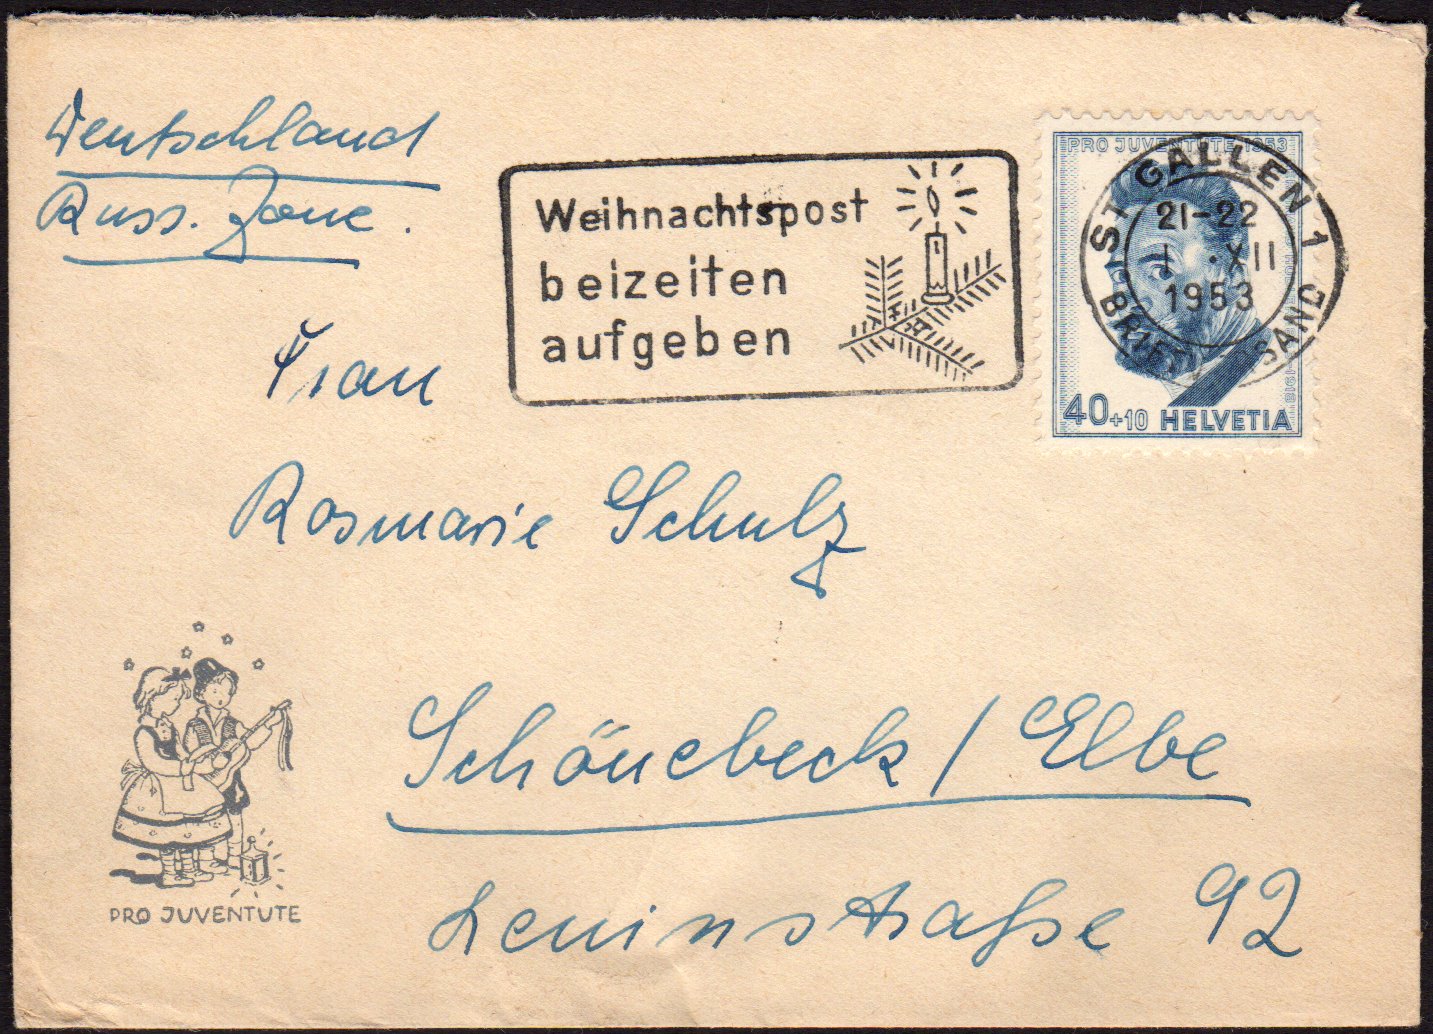 Deutschland
Russ. Zone.
Weihnachtspost
beizeiten
aufgeben
PRO JUVENTUTE 1953
ST. GALLEN 1
21-22
1.XII
1953
BRIEFVERSAND
40+10 HELVETIA
Frau
Rosmarie Schulz
Schönebeck / Elbe
Leninstraße 92
PRO JUVENTUTE